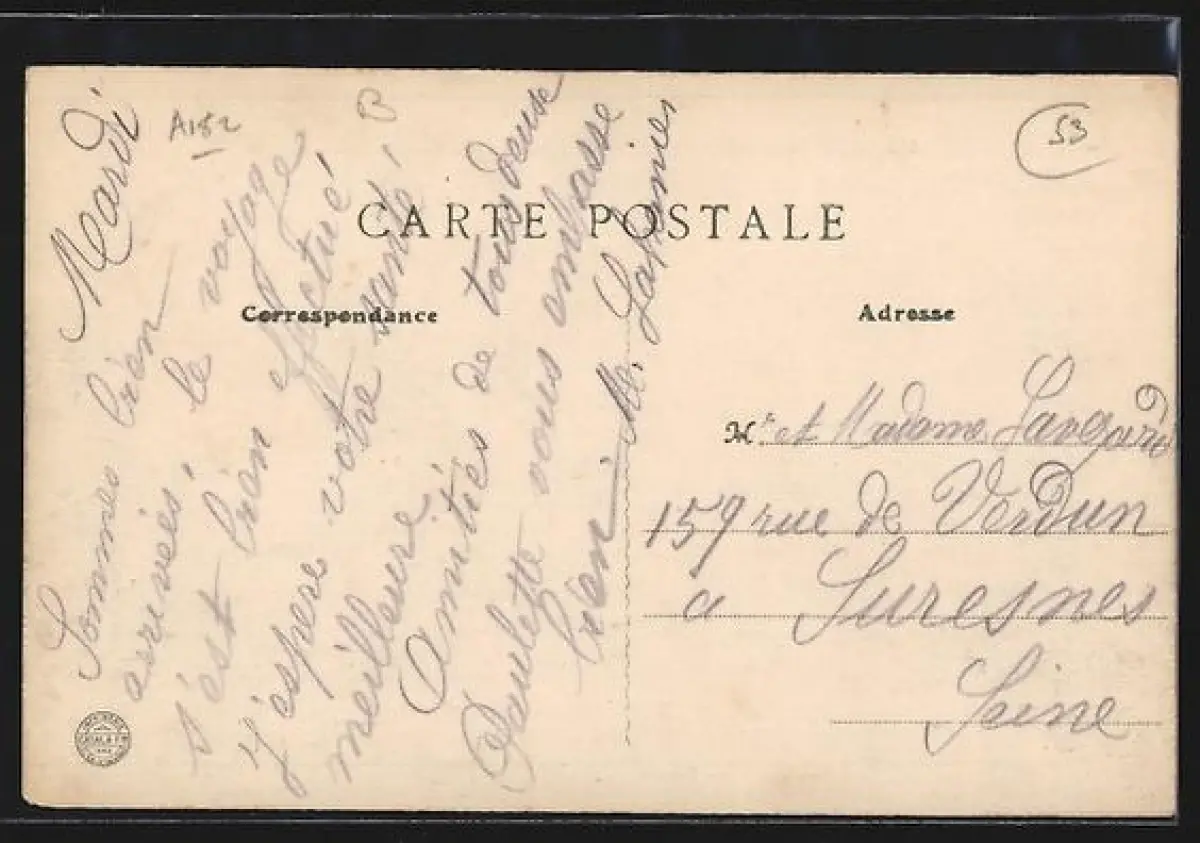 A152
B
53
CARTE POSTALE
Correspondance
Adresse
Mardi
Sommes bien
arrivés, le voyage
s'est bien effectué
J'espere votre santé
meilleure
Amitiés de tous deuse
Paulette vous embrasse
bien M.
Mr et Madame
159 rue de Verdun
a Suresnes
Seine